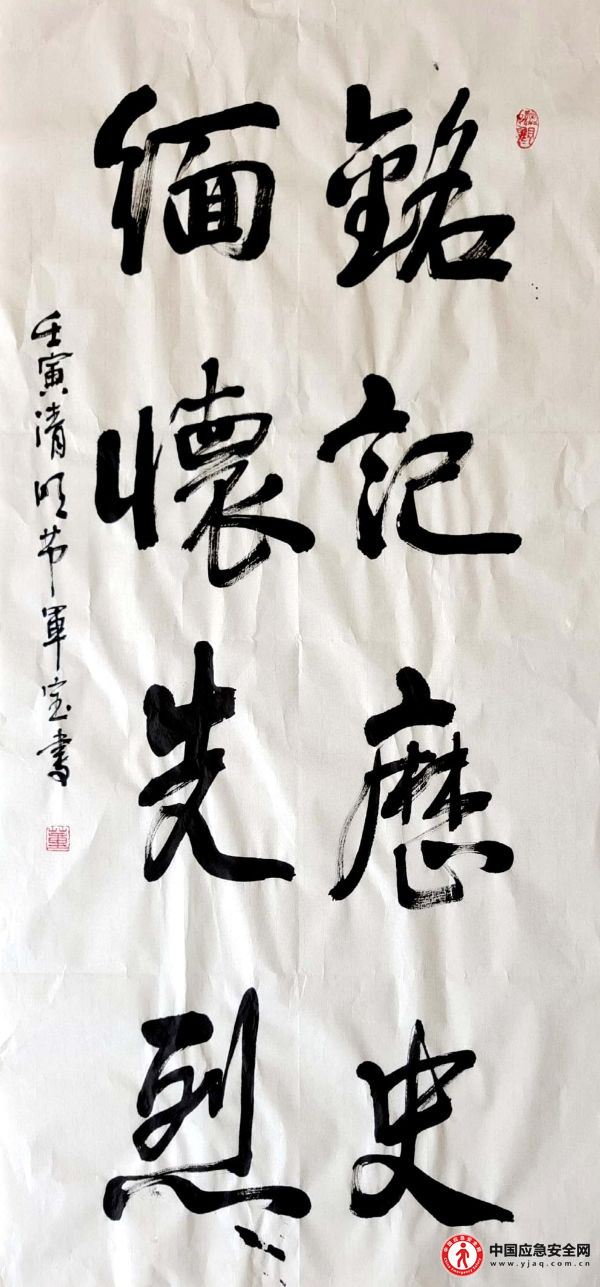 銘記歷史
緬懷先烈
壬寅清明节軍宝書
董
中国应急安全网
www.yjaq.com.cn